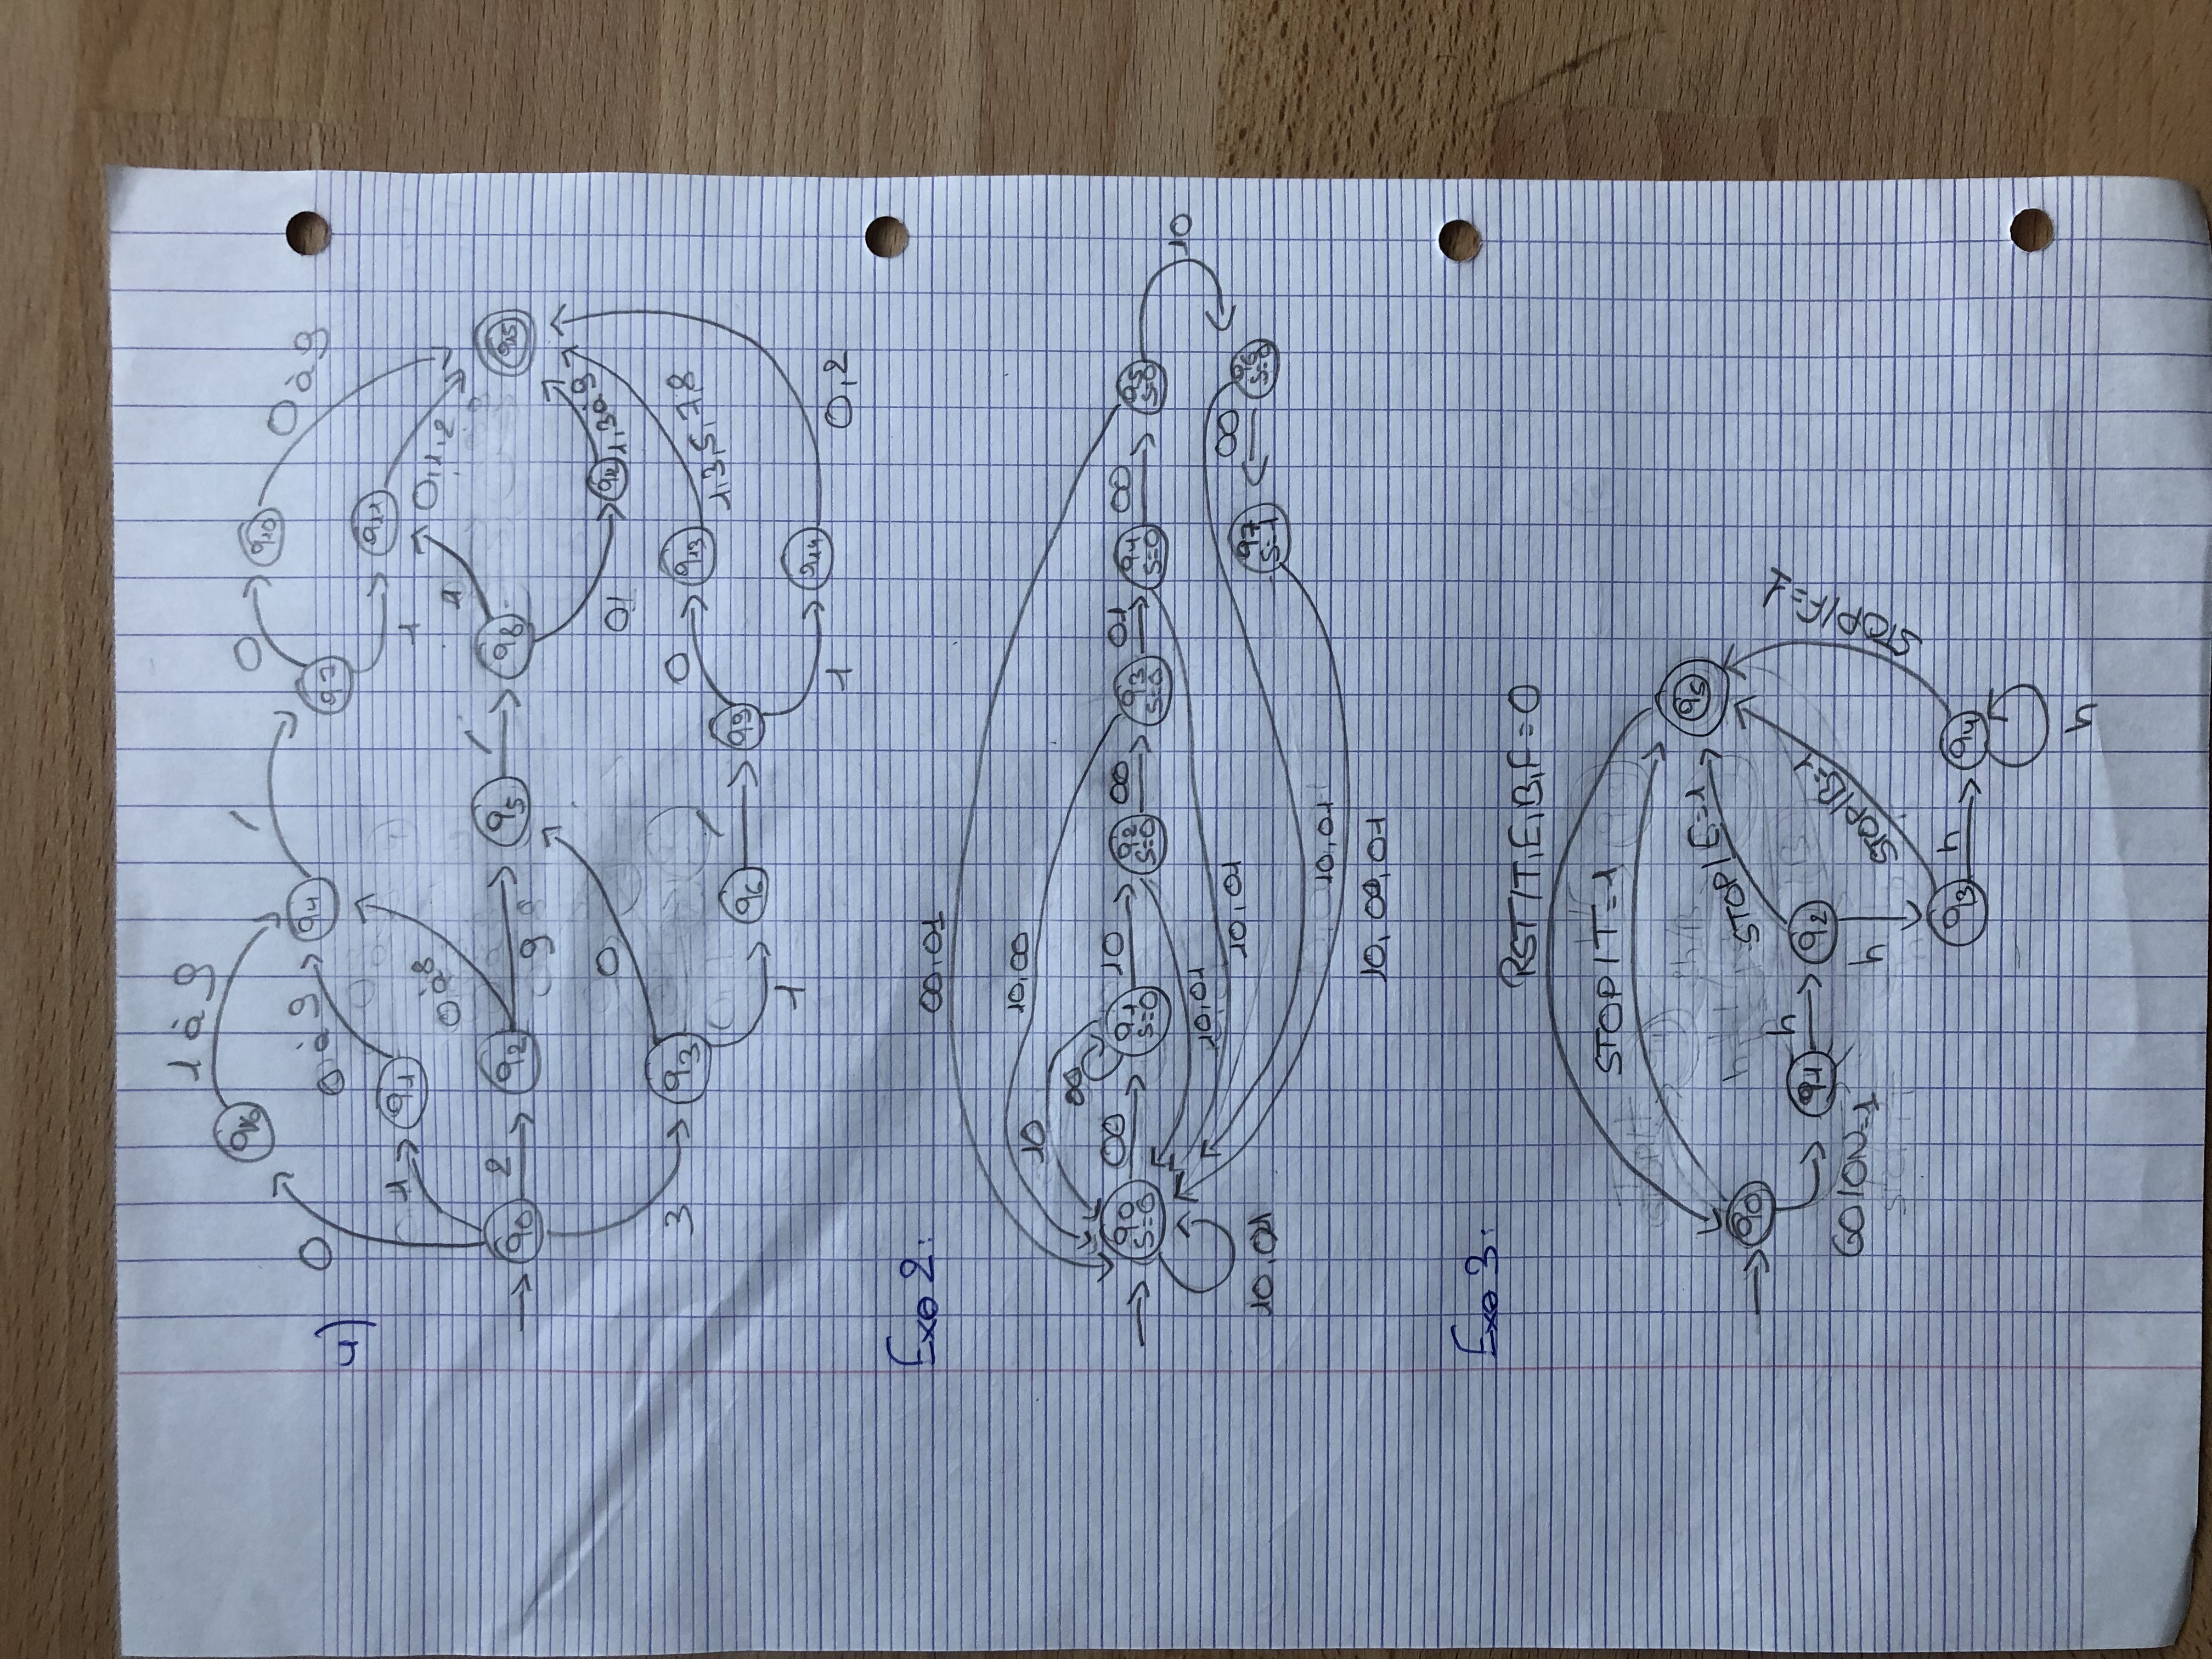 4)
1 à 9
q16
0
0 à 9
q4
/
q7
0
q10
0 à 9
1
q1
0 à 8
1
q11
0,1,2
1
q0
2
q2
9
q5
/
q8
q15
0
01
q12
1,3 à 9
3
q3
0
q13
1,3,5,7,8
1
q6
/
q9
1
q14
0,2
Exo 2:
00,01
10,00
10
00
q0
S=0
00
q1
S=0
10
q2
S=0
00
q3
S=0
01
q4
S=0
00
q5
S=0
10
10,01
10,01
10,01
q7
S=1
00
q6
S=0
10,01
10,00,01
Exo 3:
RST/T,E,B,F=0
STOP/T=1
q5
STOP/E=1
q0
GO/ON=1
q1
h
q2
h
STOP/B=1
STOP/F=1
q3
h
q4
h